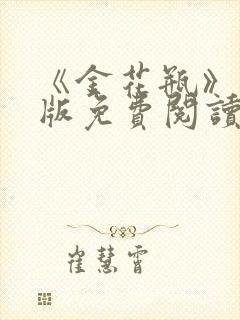 《金花瓶》
版免費閱讀
崔慧霄